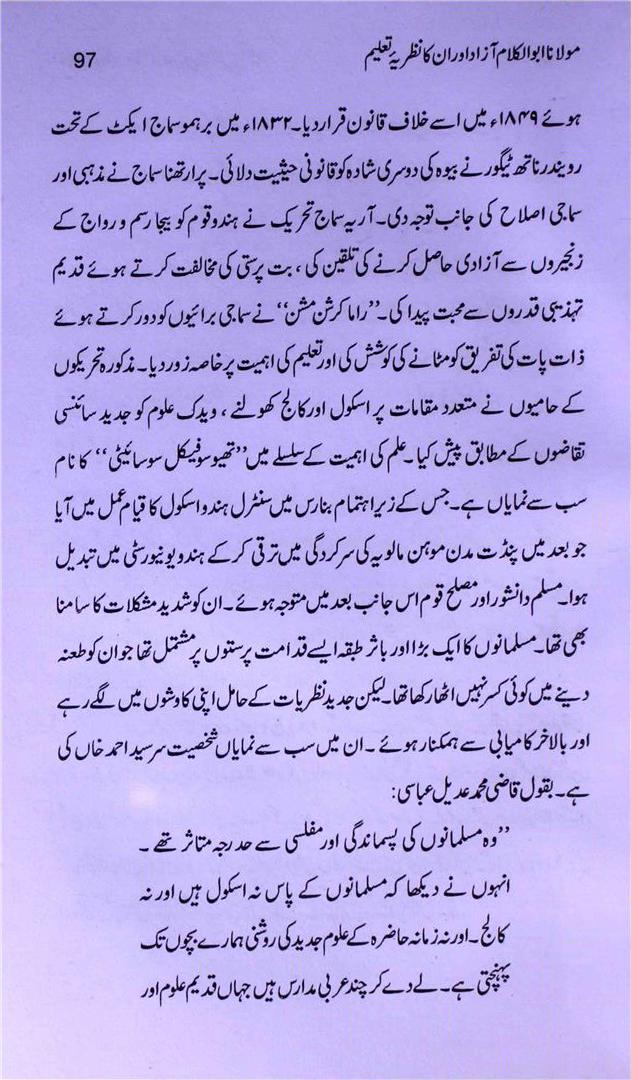 مولانا ابوالکلام آزاد اور ان کا نظریۂ تعلیم 97
ہوئے ۱۸۴۹ء میں اسے خلاف قانون قرار دیا۔ ۱۸۳۲ء میں برہمو سماج ایکٹ کے تحت
رویندر ناتھ ٹیگور نے بیوہ کی دوسری شادہ کو قانونی حیثیت دلائی۔ پرارتھنا سماج نے مذہبی اور
سماجی اصلاح کی جانب توجہ دی۔ آریہ سماج تحریک نے ہندو قوم کو بیجا رسم و رواج کے
زنجیروں سے آزادی حاصل کرنے کی تلقین کی، بت پرستی کی مخالفت کرتے ہوئے قدیم
تہذیبی قدروں سے محبت پیدا کی۔ ’’راما کرشن مشن‘‘ نے سماجی برائیوں کو دور کرتے ہوئے
ذات پات کی تفریق کو مٹانے کی کوشش کی اور تعلیم کی اہمیت پر خاصہ زور دیا۔ مذکورہ تحریکوں
کے حامیوں نے متعدد مقامات پر اسکول اور کالج کھولنے، ویدک علوم کو جدید سائنسی
تقاضوں کے مطابق پیش کیا۔ علم کی اہمیت کے سلسلے میں ’’تھیوسوفیکل سوسائیٹی‘‘ کا نام
سب سے نمایاں ہے۔ جس کے زیر اہتمام بنارس میں سنٹرل ہندو اسکول کا قیام عمل میں آیا
جو بعد میں پنڈت مدن موہن مالویہ کی سرکردگی میں ترقی کرکے ہندو یونیورسٹی میں تبدیل
ہوا۔ مسلم دانشور اور مصلح قوم اس جانب بعد میں متوجہ ہوئے۔ ان کو شدید مشکلات کا سامنا
بھی تھا۔ مسلمانوں کا ایک بڑا اور باثر طبقہ ایسے قدامت پرستوں پر مشتمل تھا جو ان کو طعنہ
دینے میں کوئی کسر نہیں اٹھا رکھا تھا۔ لیکن جدید نظریات کے حامل اپنی کاوشوں میں لگے رہے
اور بالاخر کامیابی سے ہمکنار ہوئے۔ ان میں سب سے نمایاں شخصیت سرسید احمد خاں کی
ہے۔ بقول قاضی محمد عدیل عباسی:
’’وہ مسلمانوں کی پسماندگی اور مفلسی سے حد درجہ متاثر تھے۔
انہوں نے دیکھا کہ مسلمانوں کے پاس نہ اسکول ہیں اور نہ
کالج۔ اور نہ زمانہ حاضرہ کے علوم جدید کی روشنی ہمارے بچوں تک
پہنچتی ہے۔ لے دے کر چند عربی مدارس ہیں جہاں قدیم علوم اور